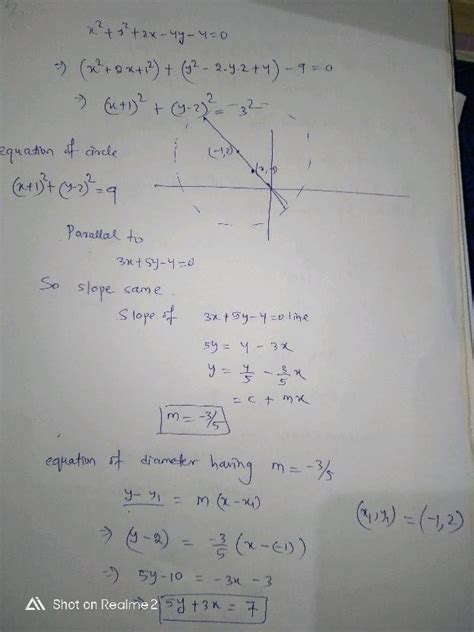 x² + y² + 2x - 4y - 4 = 0
⇒ (x² + 2x + 1²) + (y² - 2·y·2 + 4) - 9 = 0
⇒ (x+1)² + (y-2)² = 3²
equation of circle
(x+1)² + (y-2)² = 9
(-1,2)
Parallal to
3x + 5y - 4 = 0
So slope same.
Slope of 3x + 5y - 4 = 0 line
5y = 4 - 3x
y = 4/5 - 3/5 x
= c + mx
m = -3/5
equation of diameter having m = -3/5
y - y₁ = m (x - x₁)
(x₁, y₁) = (-1, 2)
⇒ (y-2) = -3/5 (x - (-1))
⇒ 5y - 10 = -3x - 3
⇒ 5y + 3x = 7
Shot on Realme 2